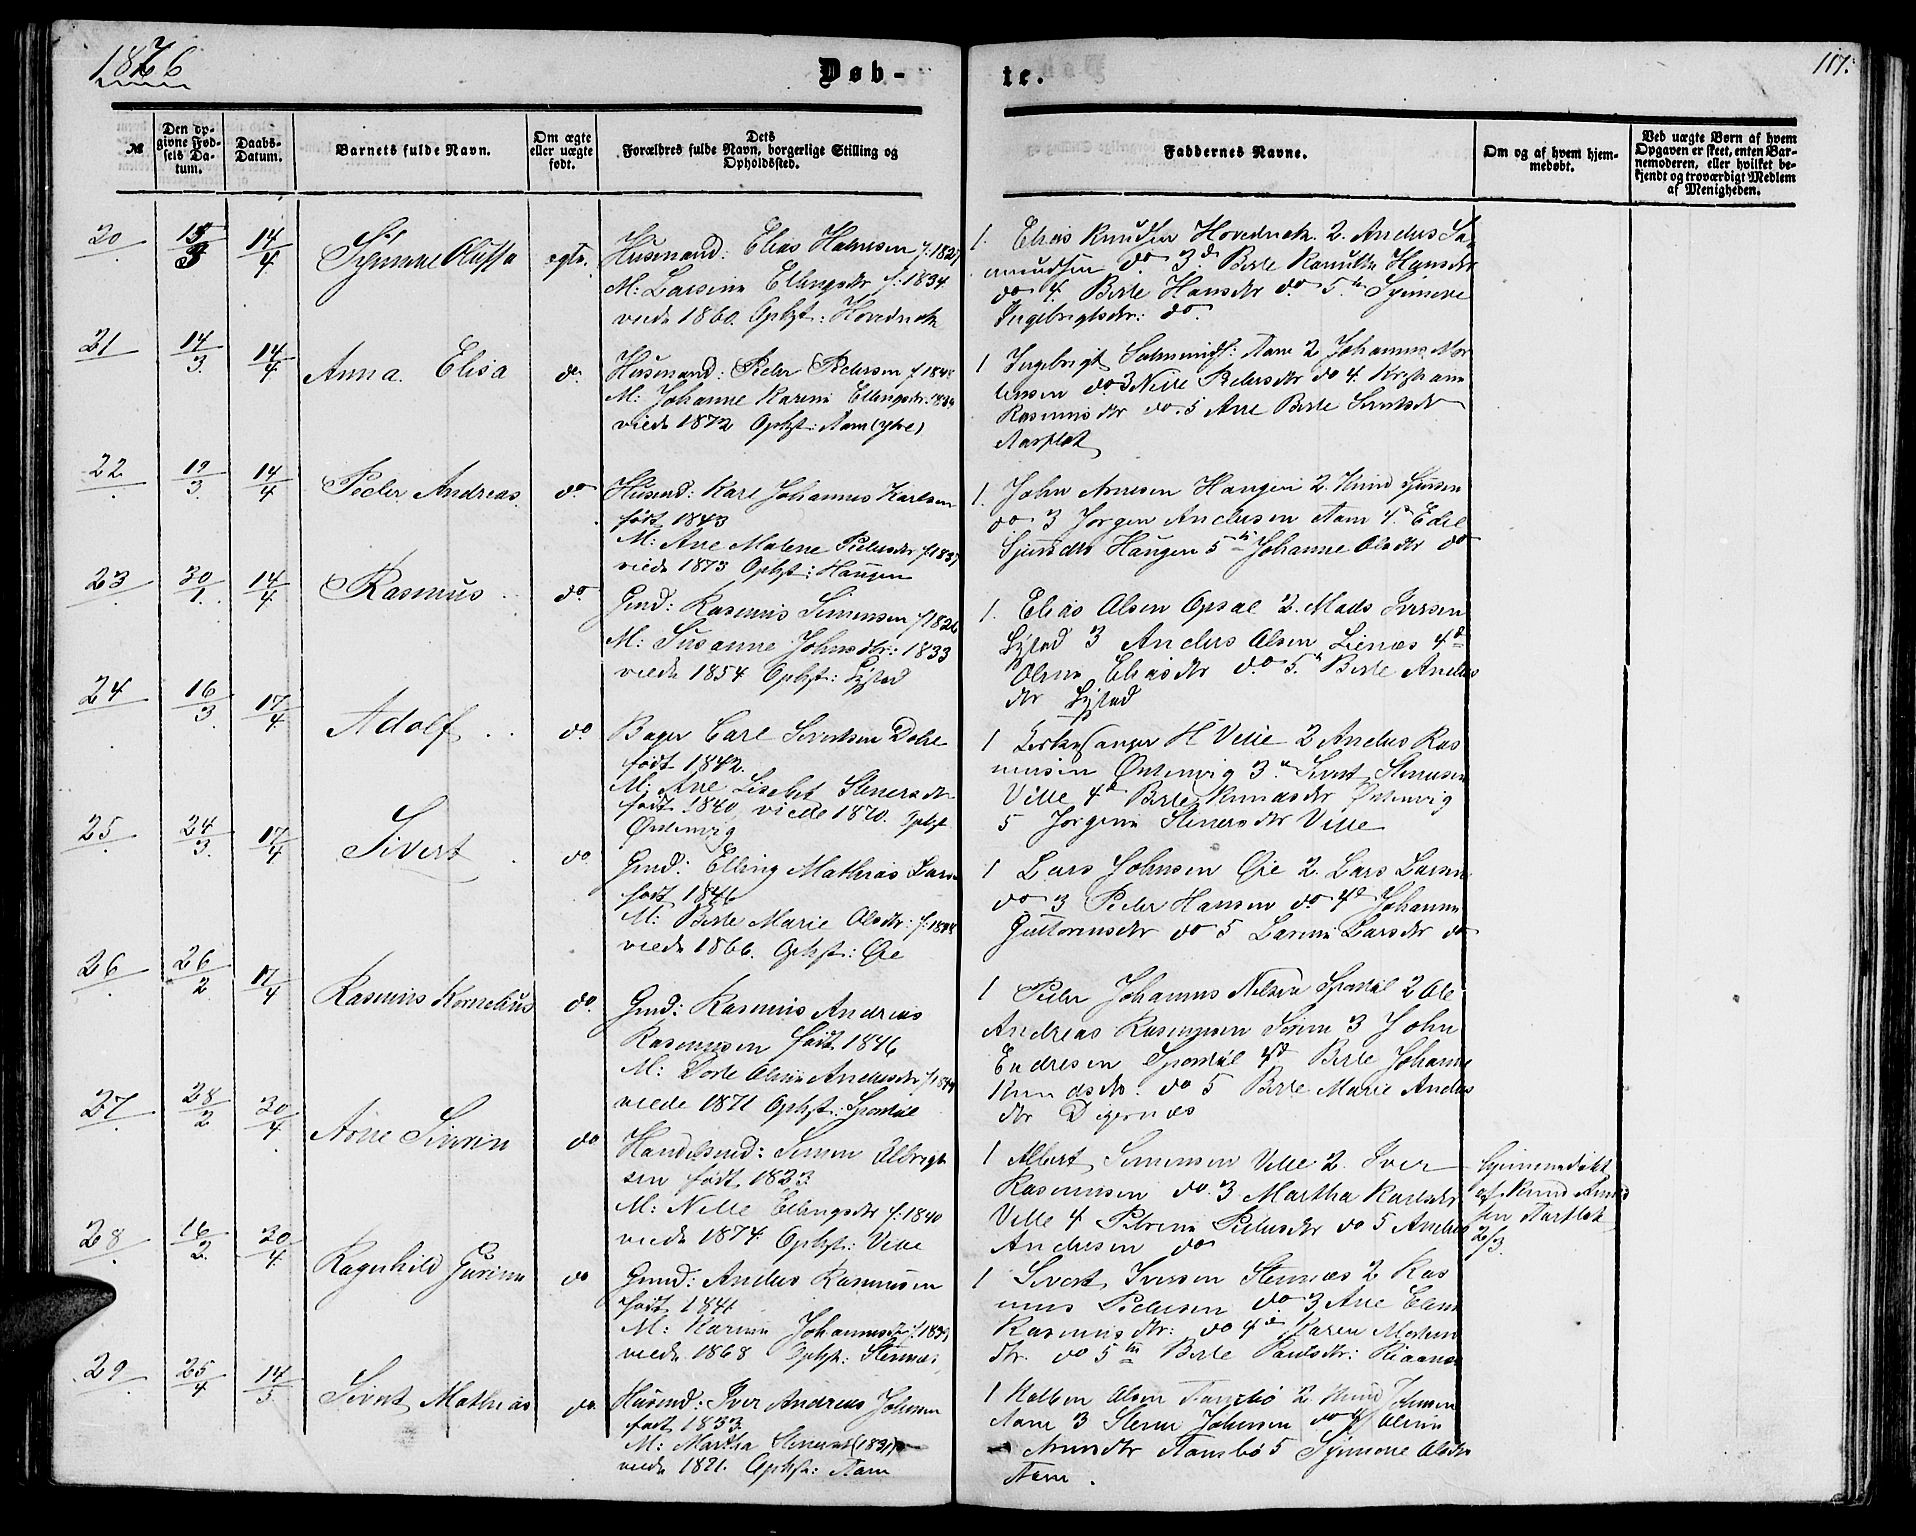 1876
Døb-
te.
117.
№
Den opgivne Fødsels Datum.
Daabs-Datum.
Barnets fulde Navn.
Om ægte eller uægte født.
Dets Forældres fulde Navn, borgerlige Stilling og Opholdssted.
Faddernes Navne.
Om og af hvem hjemmedøbt.
Ved uægte Børn af hvem Opgaven er skeet, enten Barnemoderen, eller hvilket bekjendt og troværdigt Medlem af Menigheden.
20
14/4
Synnove Olufsa
egte.
Husmand: Elias f. 1827
M: Larsine Ellingsdtr f: 1834
viede 1860. Ophst:
1. Elias Knudsen 2. Anders
do 3d Berte Hansdtr
do 4. Berte Hansdtr do 5. Synneve
Ingebrigtsdtr: do.
21
14/3
14/4
Anna Elisa
do.
Husmand: Peder Pedersen f 1848
M: Johanne Karine Ellingsdtr:
viede 1872 Ophst: Aam (ytre)
1 Ingebrigt Aam 2 Johannes Mor
tensen do 3 Nille Pedersdtr do 4.
Rasmusdtr do. 5 Ane Berte Sivertsdtr
Aarflot
22
19/3
14/4
Peder Andreas
do
Husmd: Karl Johannes Karlsen
født 1843
M: Ane Malene Pedersdtr f 1837
viede 1873 Ophst: Haugen
1. John Arnesen Haugen 2. Knud Sjursen
do 3 Jørgen Andersen Aam 4.
Sjursdtr Haugen 5 Johanne Olsdtr do
23
30/1
14/4
Rasmus
do.
Gmd: Rasmus Simensen f 1826
M: Susanne Johnsdtr: 1833
viede 1854 Ophst:
1. Elias Olsen Opsal 2. Mads Iversen
3 Anders Olsen 4d
Oline Eliasdtr do. 5. Berte Anders
dtr
24
16/3
17/4
Adolf
do.
Bager Carl Sivertsen
født 1842.
M: Ane Lisebet Stenersdtr
født 1840, viede 1870. Ophst
Østenvig
1 Kirkesanger H Velle 2 Anders Ras
musen Østenvig 3. Sivert Stenersen
Velle 4d Berte Knudsdtr Østenvig
5 Jørgine Stenersdtr Velle
25
24/3
17/4
Sivert
do
Gmd: Elling Mathias Lars
født 1846
M: Berte Marie Olsdtr: f. 1842
viede 1866. Ophst: Øie
1 Lars Johnsen Øie 2. Lars Larsen
do 3 Peder Hansen do 4d Johanne
Guttormsdtr do 5 Larsine Larsdtr do
26
26/2
17/4
Rasmus Kornelius
do.
Gmd: Rasmus Andreas
Rasmusen født 1846
M: Dorte Oline Andersdtr
viede 1871 Ophst:
1 Peder Johannes Nelsen 2 Ole
Andreas Rasmussen 3 John
Endresen 4d Berte Johanne
Knudsdtr. do 5 Berte Marie Anders
dtr Digernæs
27
28/2
30/4
Arne
do
Handelsmd: Simen Albrigt
sen født 1823
M: Nille Ellingsdtr f: 1840
viede 1874 Ophst: Velle
1 Albert Simensen Velle 2. Iver
Rasmusen do. 3 Martha Karlsdtr
Velle 4 Petrine Pedersdtr do 5 Anders
Andersen do
hjemmedøbt
af Knud Knud
sen Aarflot
2/3.
28
16/2
30/4
Ragnhild Gurine
do
Gmd: Anders Rasmusen
født 1841
M: Karine Johannesdtr f: 1839
viede 1868 Ophst: Stennæs
1 Sivert Iversen Stennæs 2 Ras
mus Pedersen do. 3 Ane Eline
Rasmusdtr: do 4d Karen Morten
dtr. do 5te Berte Paulsdtr:
29
25/4
14/5
Sivert Mathias
do.
Husmd: Iver Andreas Johnsen
født 1853
M: Martha (1851)
viede 1871. Ophst: Aam
1 Kolben Olsen 2 Knud Johnsen
Aam 3 Stener Johnsen do 4 Oline
Knudsdtr 5 Synnøve Olsdtr
Aam.